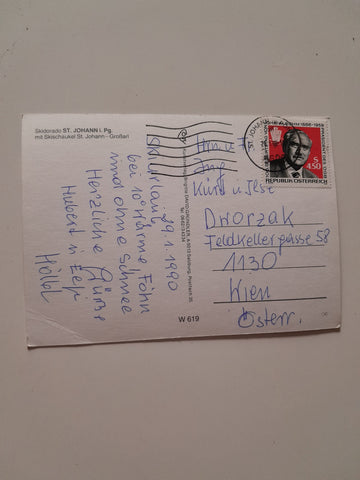 Skidorado ST. JOHANN i. Pg.
mit Skischaukel St. Johann - Großarl
Skiurlaub 29.1.1990
bei 10° Wärme Föhn
und ohne Schnee
Herzliche Grüße
Hubert u.
Hölbl
W 619
ST. JOHANN
1886-1958
S 4.50
REPUBLIK ÖSTERREICH
Hrn. u. Fr.
Ing.
Kurt u Ilse
Dworzak
Feldkellergasse 58
1130
Wien
Österr.